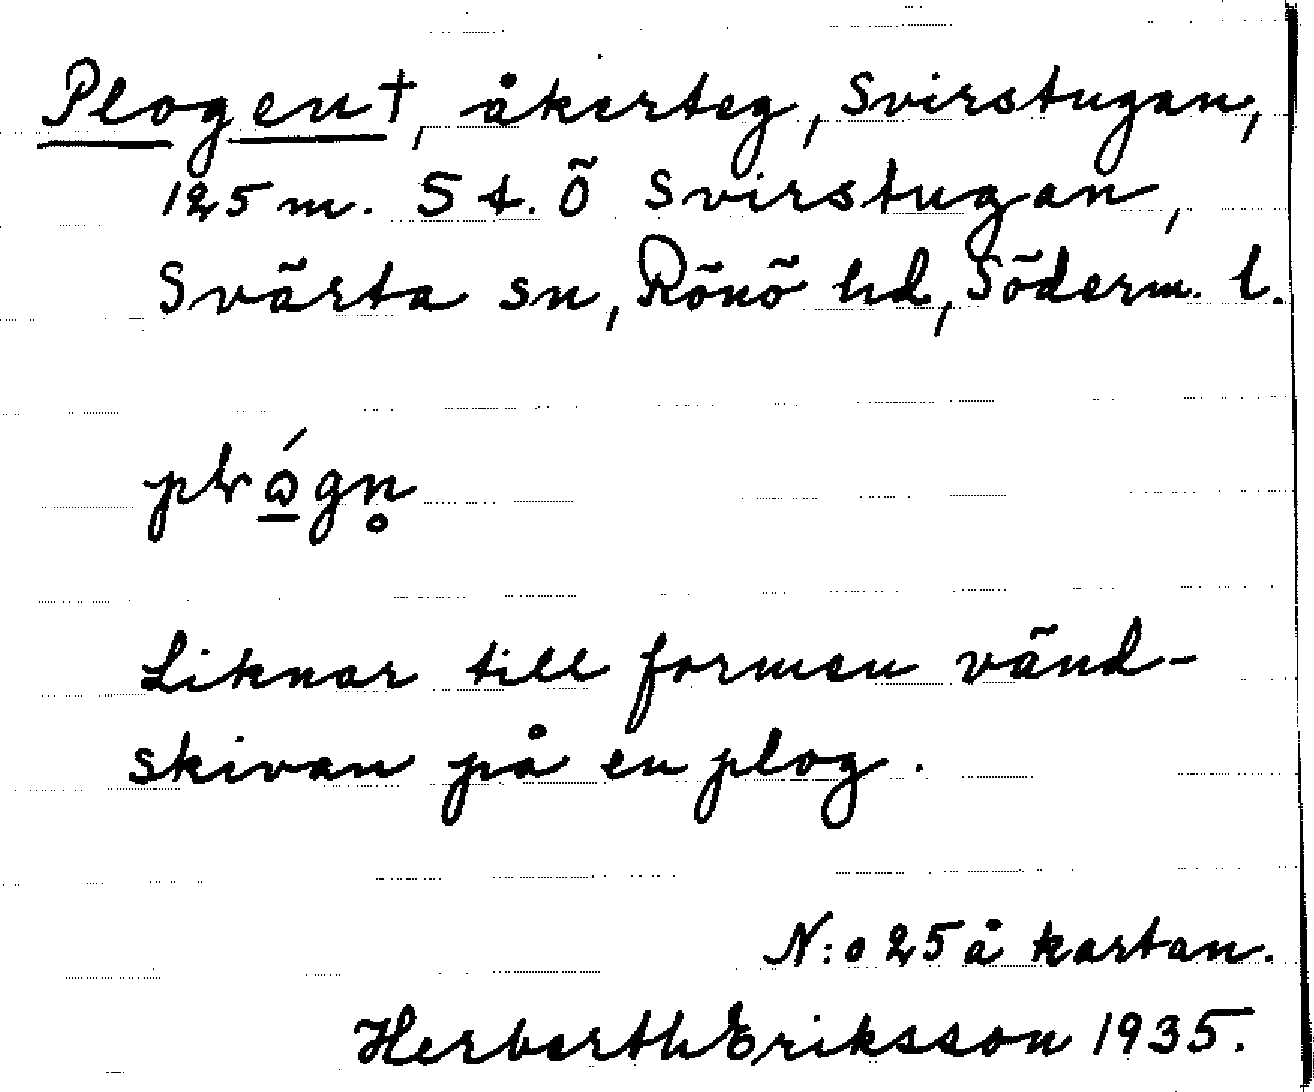 Plogen †, åkerteg, Svirstugan,
125 m. S t. Ö Svirstugan,
Svärta sn, Rönö hd, Söderm. l.
Liknar till formen vänd-
skivan på en plog.
N:o 25 å kartan.
Herberth Eriksson 1935.